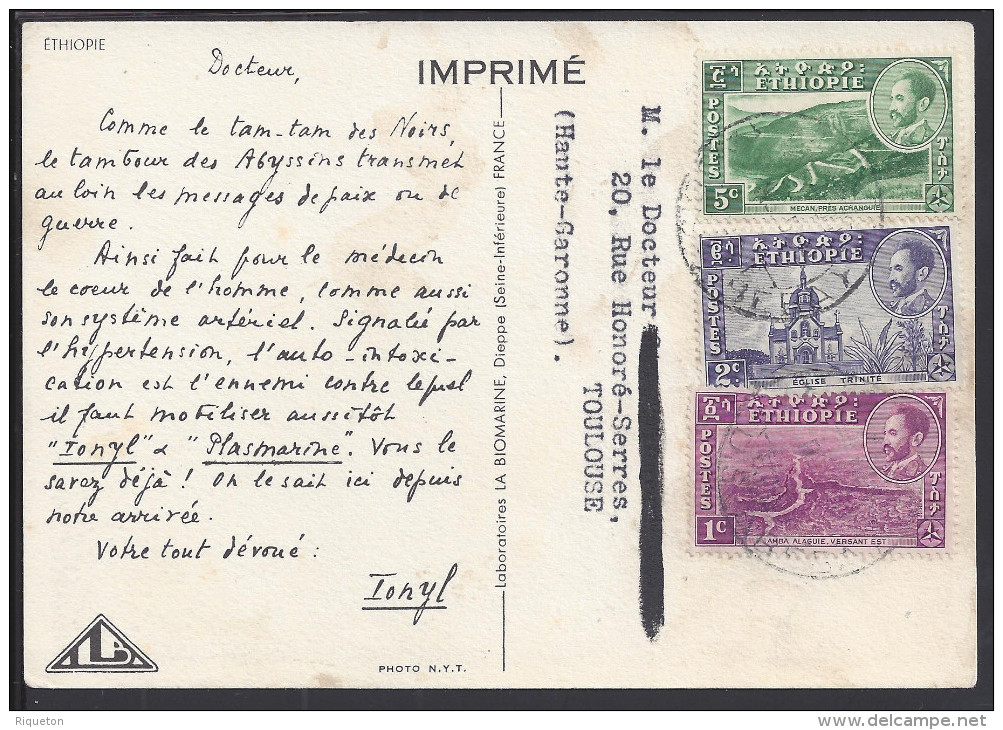 ÉTHIOPIE
Docteur,
Comme le tam-tam des Noirs,
le tambour des Abyssins transmet
au loin les messages de paix ou de
guerre.
Ainsi fait pour le médecin
le coeur de l'homme, comme aussi
son système artériel. Signalée par
l'hypertension, l'auto-intoxi-
cation est l'ennemi contre lequel
il faut mobiliser aussitôt
"Ionyl" & "Plasmarine". Vous le
savez déjà ! On le sait ici depuis
notre arrivée.
Votre tout dévoué :
Ionyl
PHOTO N.Y.T.
Laboratoires LA BIOMARINE, Dieppe (Seine-Inférieure) FRANCE
IMPRIMÉ
M. le Docteur
20, Rue Honoré-Serres,
TOULOUSE
(Haute-Garonne).
ኢትዮጵያ፡
ETHIOPIE
POSTES
ፖስታ
5c
MECAN, PRÈS ACRANGUIE
ኢትዮጵያ፡
ETHIOPIE
POSTES
ፖስታ
2c
ÉGLISE TRINITÉ
ኢትዮጵያ፡
ETHIOPIE
POSTES
ፖስታ
1c
AMBA ALAGUIE, VERSANT EST
Riqueton
www.delcampe.net